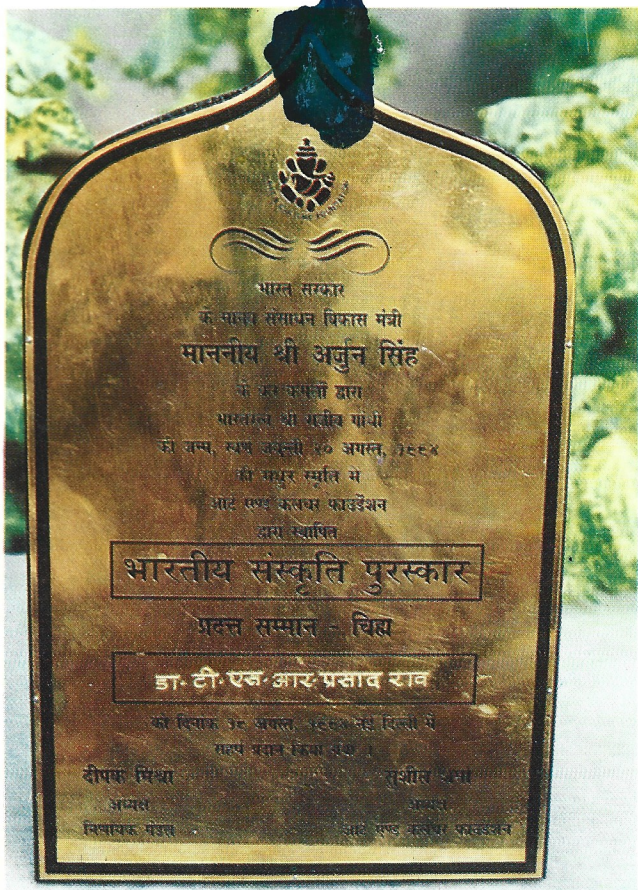 भारत सरकार
के मानव संसाधन विकास मंत्री
माननीय श्री अर्जुन सिंह
के कर कमलों द्वारा
भारतरत्न श्री राजीव गांधी
की जन्म, स्वर्ण जयन्ती २० अगस्त, १९९४
की मधुर स्मृति में
आर्ट एण्ड कलचर फाउडेंशन
द्वारा स्थापित
भारतीय संस्कृति पुरस्कार
प्रदत्त सम्मान - चिह्न
डा॰ टी॰ एस॰ आर॰ प्रसाद राव
को दिनांक १८ अगस्त, नई दिल्ली में
सहर्ष प्रदान किया गया ।
दीपक मिश्रा
अध्यक्ष
निर्णायक मंडल
सुशील
अध्यक्ष
आर्ट एण्ड कलचर फाउडेंशन